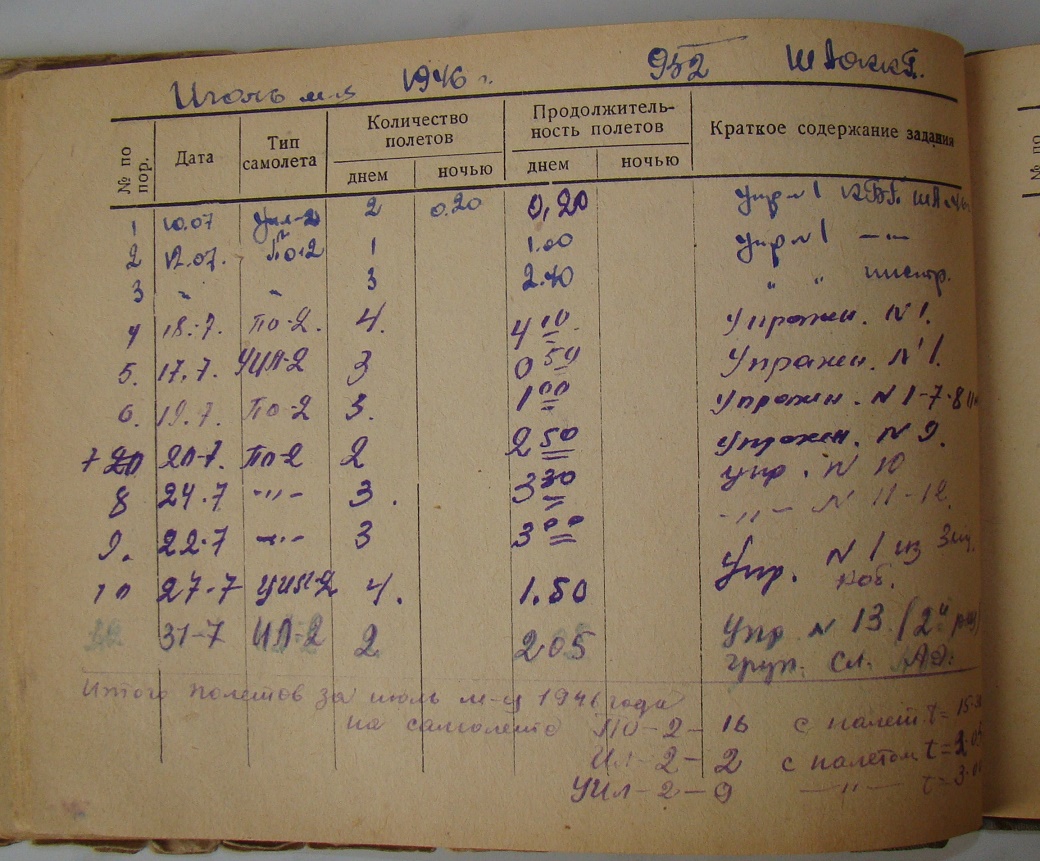 Июль м-ц 1946 г. 952 ШАККП.
№ по пор. Дата Тип самолета Количество полетов Продолжительность полетов Краткое содержание задания
днем ночью днем ночью
1 10.07 Уил-2 2 0.20 0,20 Упр №1 КБП ША
2 12.07. По-2 1 1.00 Упр №1 —"—
3 " " 3 2.40 " " инстр.
4 18.-7. По-2. 4. 4 10 Упражн. N 1.
5. 17.7. УИЛ-2 3 0 50 Упражн. N 1.
6. 19.7. По-2 3. 1 00 Упражн. N 1-7-8
7 20-7. По-2 2 2 50 Упражн. N 9.
8 24.7 -"- 3. 3 30 Упр. N 10
9. 22.7 -"- 3 3 00 -"- N 11-12.
10 27-7 УИЛ-2 4. 1.50 Упр. N 1 из
каб.
31-7 ИЛ-2 2 2 05 Упр N 13 (2й
груп. сл.
Итого полетов за июль м-ц 1946 года
на самолете ПО-2 - 16 с налет t=15
Ил-2 - 2 с налетом t=2.05
УИл-2 - 9 —"— t=3